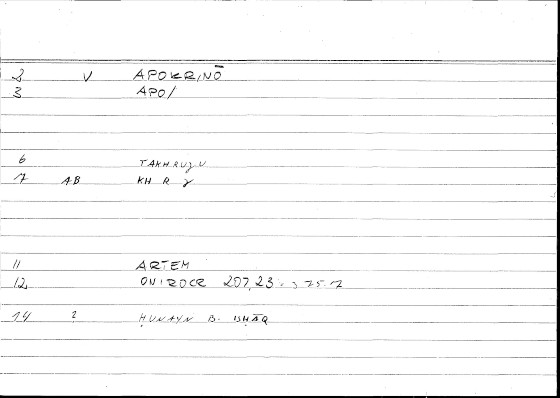 2 V APOKRINŌ
3 APO/
6 TAKHRUǧU
7 AB KH R ǧ
11 ARTEM
12 ONIROCR 207,23
14 2 ḤUNAYN B. ISḤĀQ